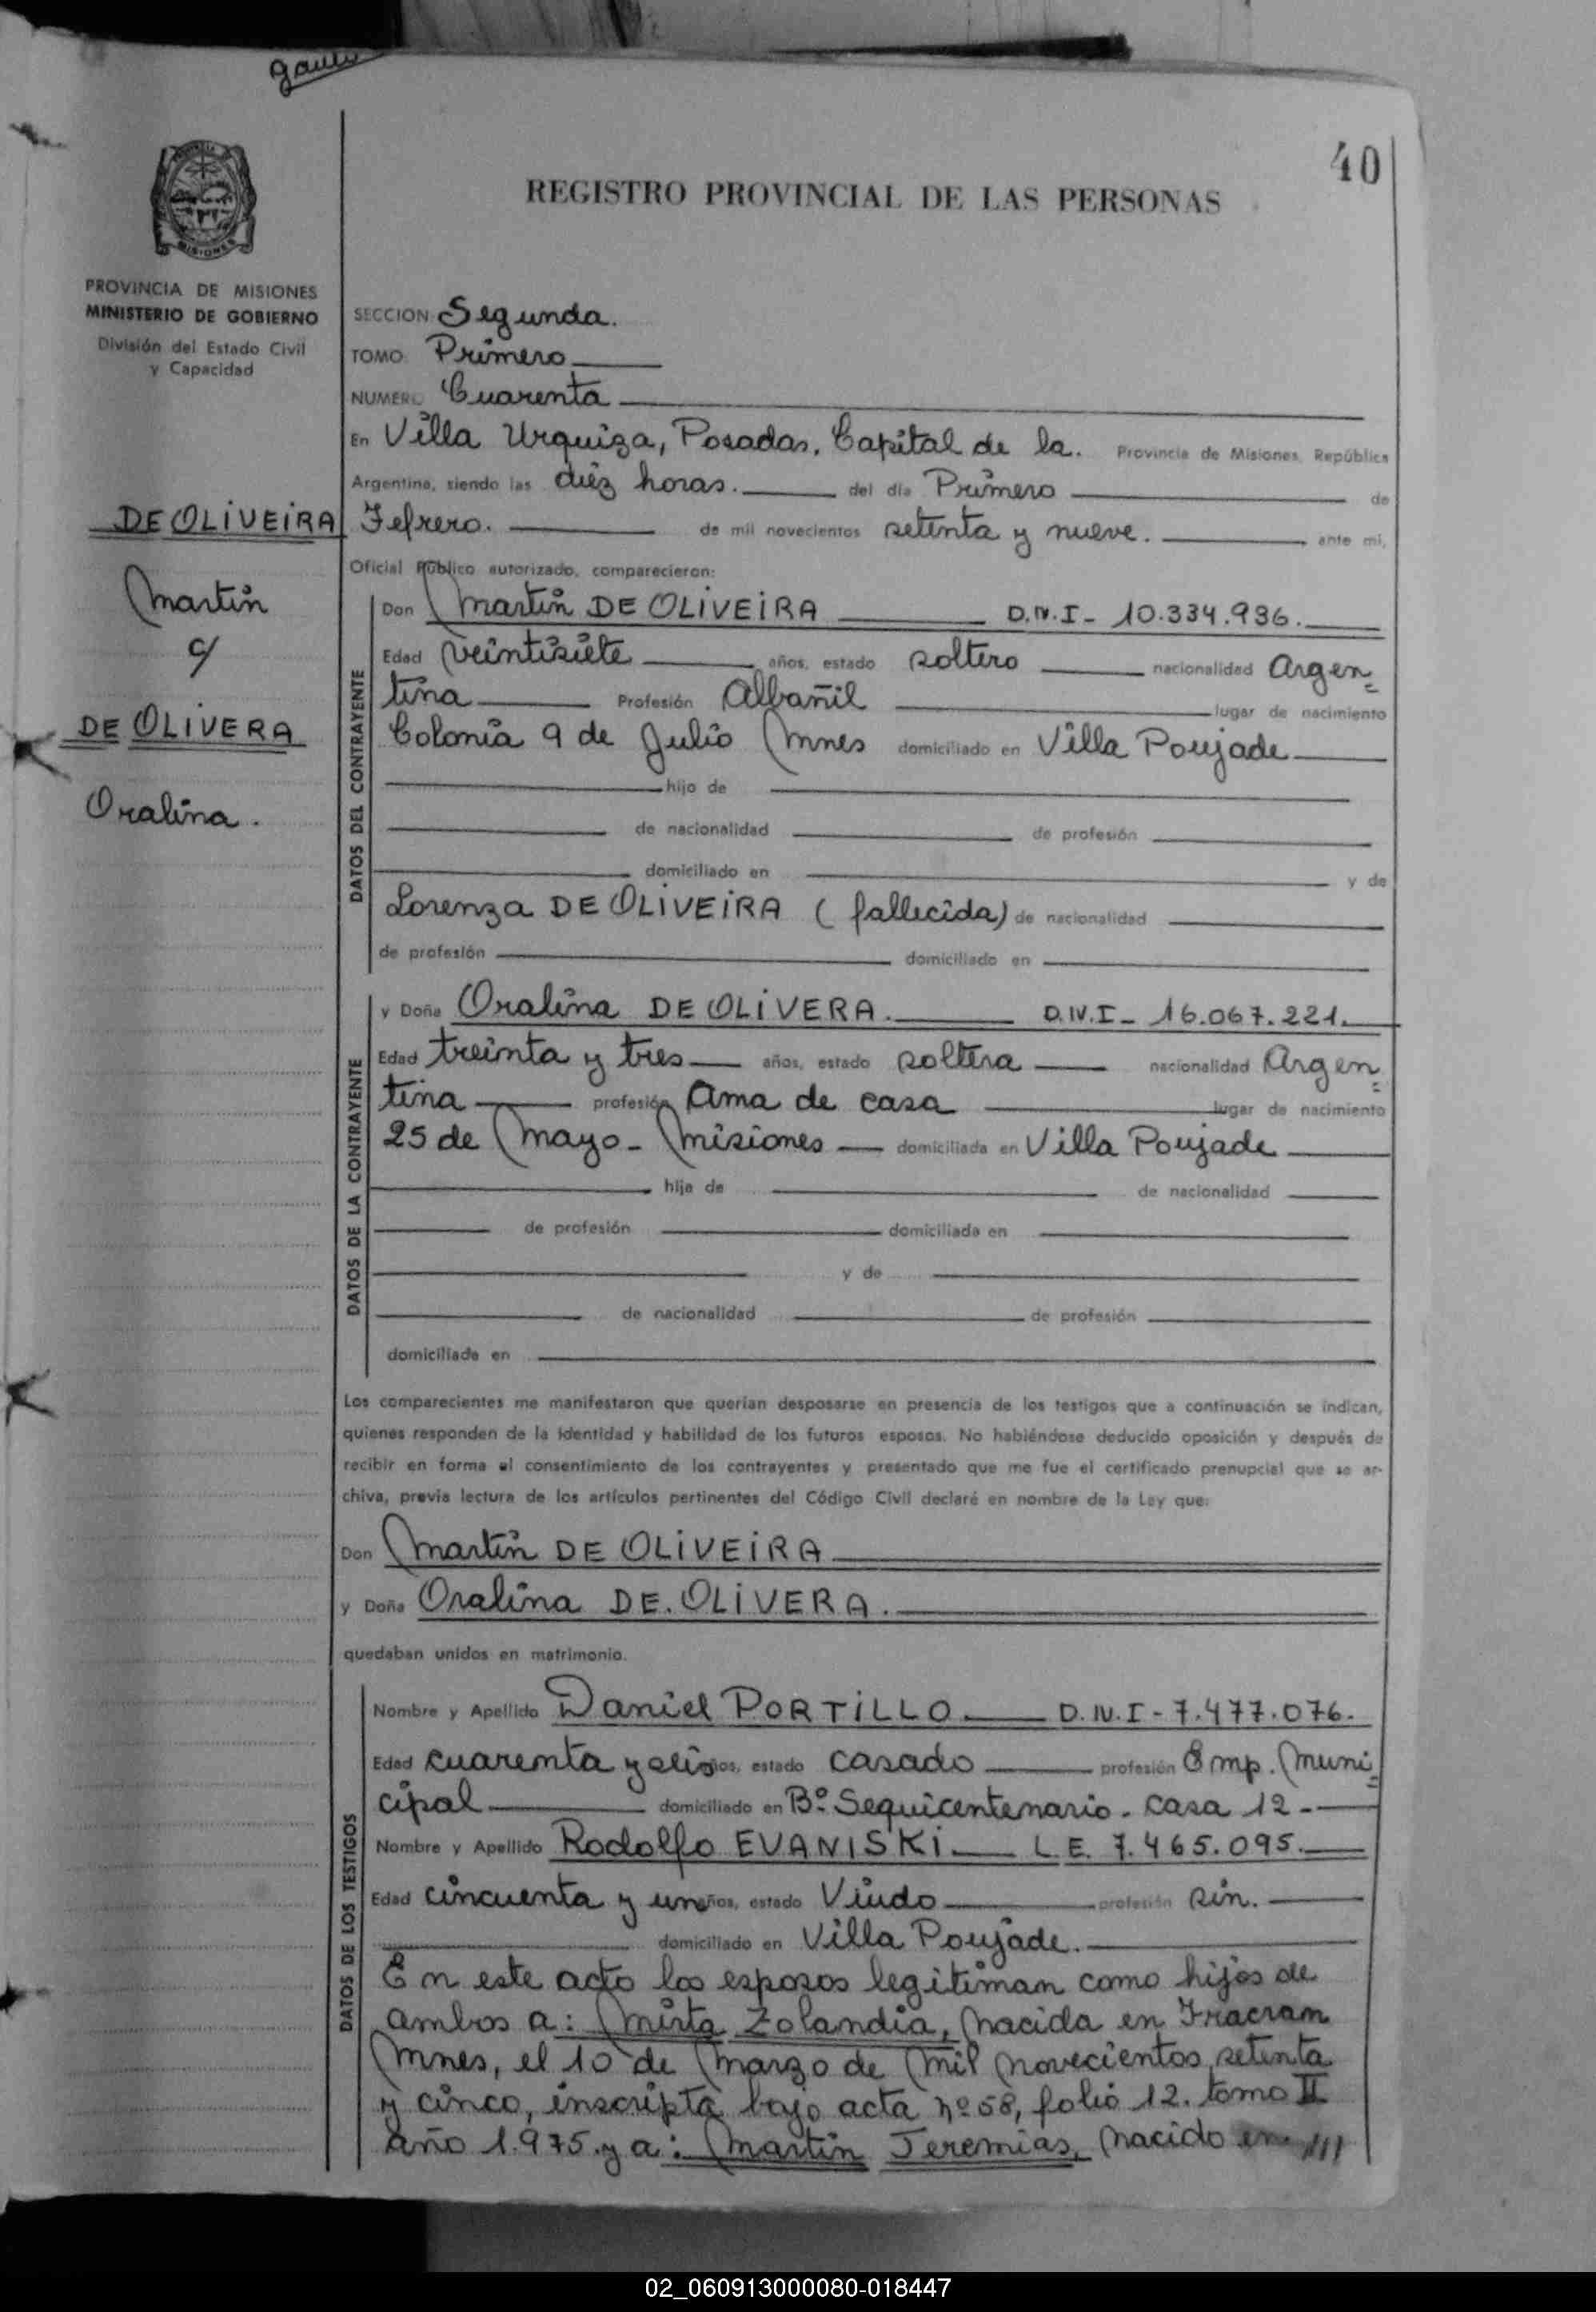 40
REGISTRO PROVINCIAL DE LAS PERSONAS
PROVINCIA DE MISIONES
MINISTERIO DE GOBIERNO
División del Estado Civil
y Capacidad
DE OLIVEIRA
Martin
c/
DE OLIVERA
Oralina.
SECCION Segunda.
TOMO Primero
NUMERO Cuarenta
En Villa Urquiza, Posadas, Capital de la. Provincia de Misiones, República
Argentina, siendo las diéz horas. del día Primero de
Febrero. de mil novecientos setenta y nueve. ante mi,
Oficial Público autorizado, comparecieron:
DATOS DEL CONTRAYENTE
Don Martin DE OLIVEIRA D.N.I- 10.334.936.
Edad veintisiete años, estado soltero nacionalidad Argen=
tina Profesión Albañil lugar de nacimiento
Colonia 9 de Julio Mnes domiciliado en Villa Poujade
hijo de
de nacionalidad de profesión
domiciliado en y de
Lorenza DE OLIVEIRA (fallecida) de nacionalidad
de profesión domiciliado en
DATOS DE LA CONTRAYENTE
y Doña Oralina DE OLIVERA. D.N.I- 16.067.221.
Edad treinta y tres años, estado soltera nacionalidad Argen=
tina profesión Ama de casa lugar de nacimiento
25 de Mayo- Misiones domiciliada en Villa Poujade
hija de de nacionalidad
de profesión domiciliada en
y de
de nacionalidad de profesión
domiciliada en
Los comparecientes me manifestaron que querían desposarse en presencia de los testigos que a continuación se indican,
quienes responden de la identidad y habilidad de los futuros esposos. No habiéndose deducido oposición y después de
recibir en forma el consentimiento de los contrayentes y presentado que me fue el certificado prenupcial que se ar-
chiva, previa lectura de los artículos pertinentes del Código Civil declaré en nombre de la Ley que:
Don Martin DE OLIVEIRA
y Doña Oralina DE. OLIVERA.
quedaban unidos en matrimonio.
DATOS DE LOS TESTIGOS
Nombre y Apellido Daniel PORTILLO D.N.I- 7.477.076.
Edad cuarenta y seis años, estado casado profesión Emp. Muni=
cipal domiciliado en Bº Sequicentenario. casa 12-
Nombre y Apellido Rodolfo EVANISKI L.E. 7.465.095.
Edad cincuenta y un años, estado Viudo profesión sin.
domiciliado en Villa Poujade.
En este acto los esposos legitiman como hijos de
ambos a: Mirta Zolandia, Nacida en Fracram
Mnes, el 10 de Marzo de Mil Novecientos setenta
y cinco, inscripta bajo acta Nº 58, folio 12. tomo II
año 1.975. y a: Martin Jeremias, Nacido en ///
02_060913000080-018447